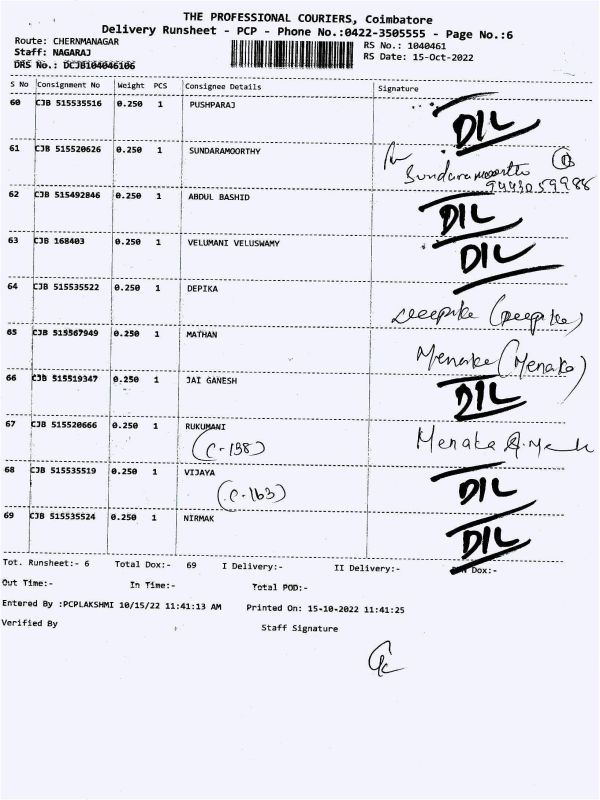 THE PROFESSIONAL COURIERS, Coimbatore
Delivery Runsheet - PCP - Phone No.:0422-3505555 - Page No.:6
Route: CHERNMANAGAR
RS No.: 1040461
Staff: NAGARAJ
RS Date: 15-Oct-2022
DRS No.: DCJB104046106
S No Consignment No Weight PCS Consignee Details Signature
60 CJB 515535516 0.250 1 PUSHPARAJ DIL
61 CJB 515520626 0.250 1 SUNDARAMOORTHY
Sundaramoortho
9443059988
62 CJB 515492846 0.250 1 ABDUL BASHID DIL
63 CJB 168403 0.250 1 VELUMANI VELUSWAMY DIL
64 CJB 515535522 0.250 1 DEPIKA
Deepika (Deepika)
65 CJB 515567949 0.250 1 MATHAN
Menaka (Menaka)
66 CJB 515519347 0.250 1 JAI GANESH DIL
67 CJB 515520666 0.250 1 RUKUMANI Menaka
(C-138)
68 CJB 515535519 0.250 1 VIJAYA DIL
(C-163)
69 CJB 515535524 0.250 1 NIRMAK DIL
Tot. Runsheet:- 6 Total Dox:- 69 I Delivery:- II Delivery:- Dox:-
Out Time:- In Time:- Total POD:-
Entered By :PCPLAKSHMI 10/15/22 11:41:13 AM Printed On: 15-10-2022 11:41:25
Verified By Staff Signature